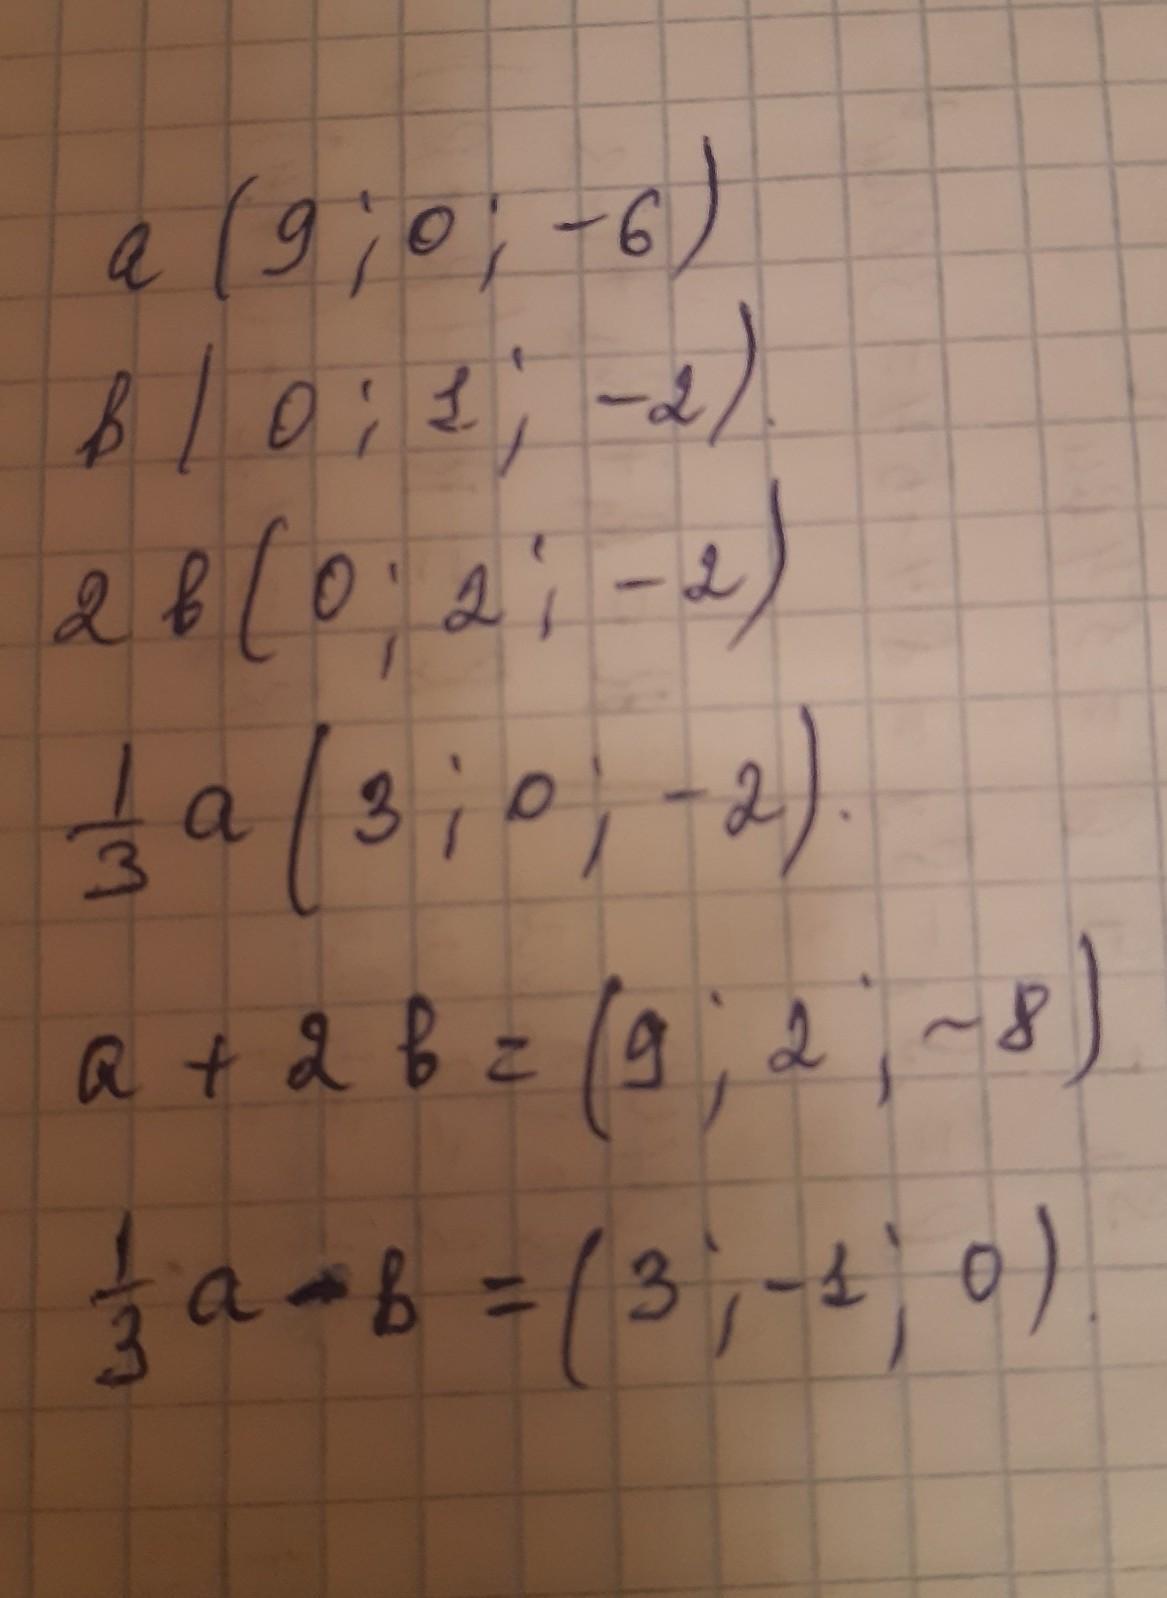 a (9; 0; -6)
b (0; 1; -2).
2 b (0; 2; -2)
1/3 a (3; 0; -2).
a + 2 b = (9; 2; -8)
1/3 a - b = (3; -1; 0).